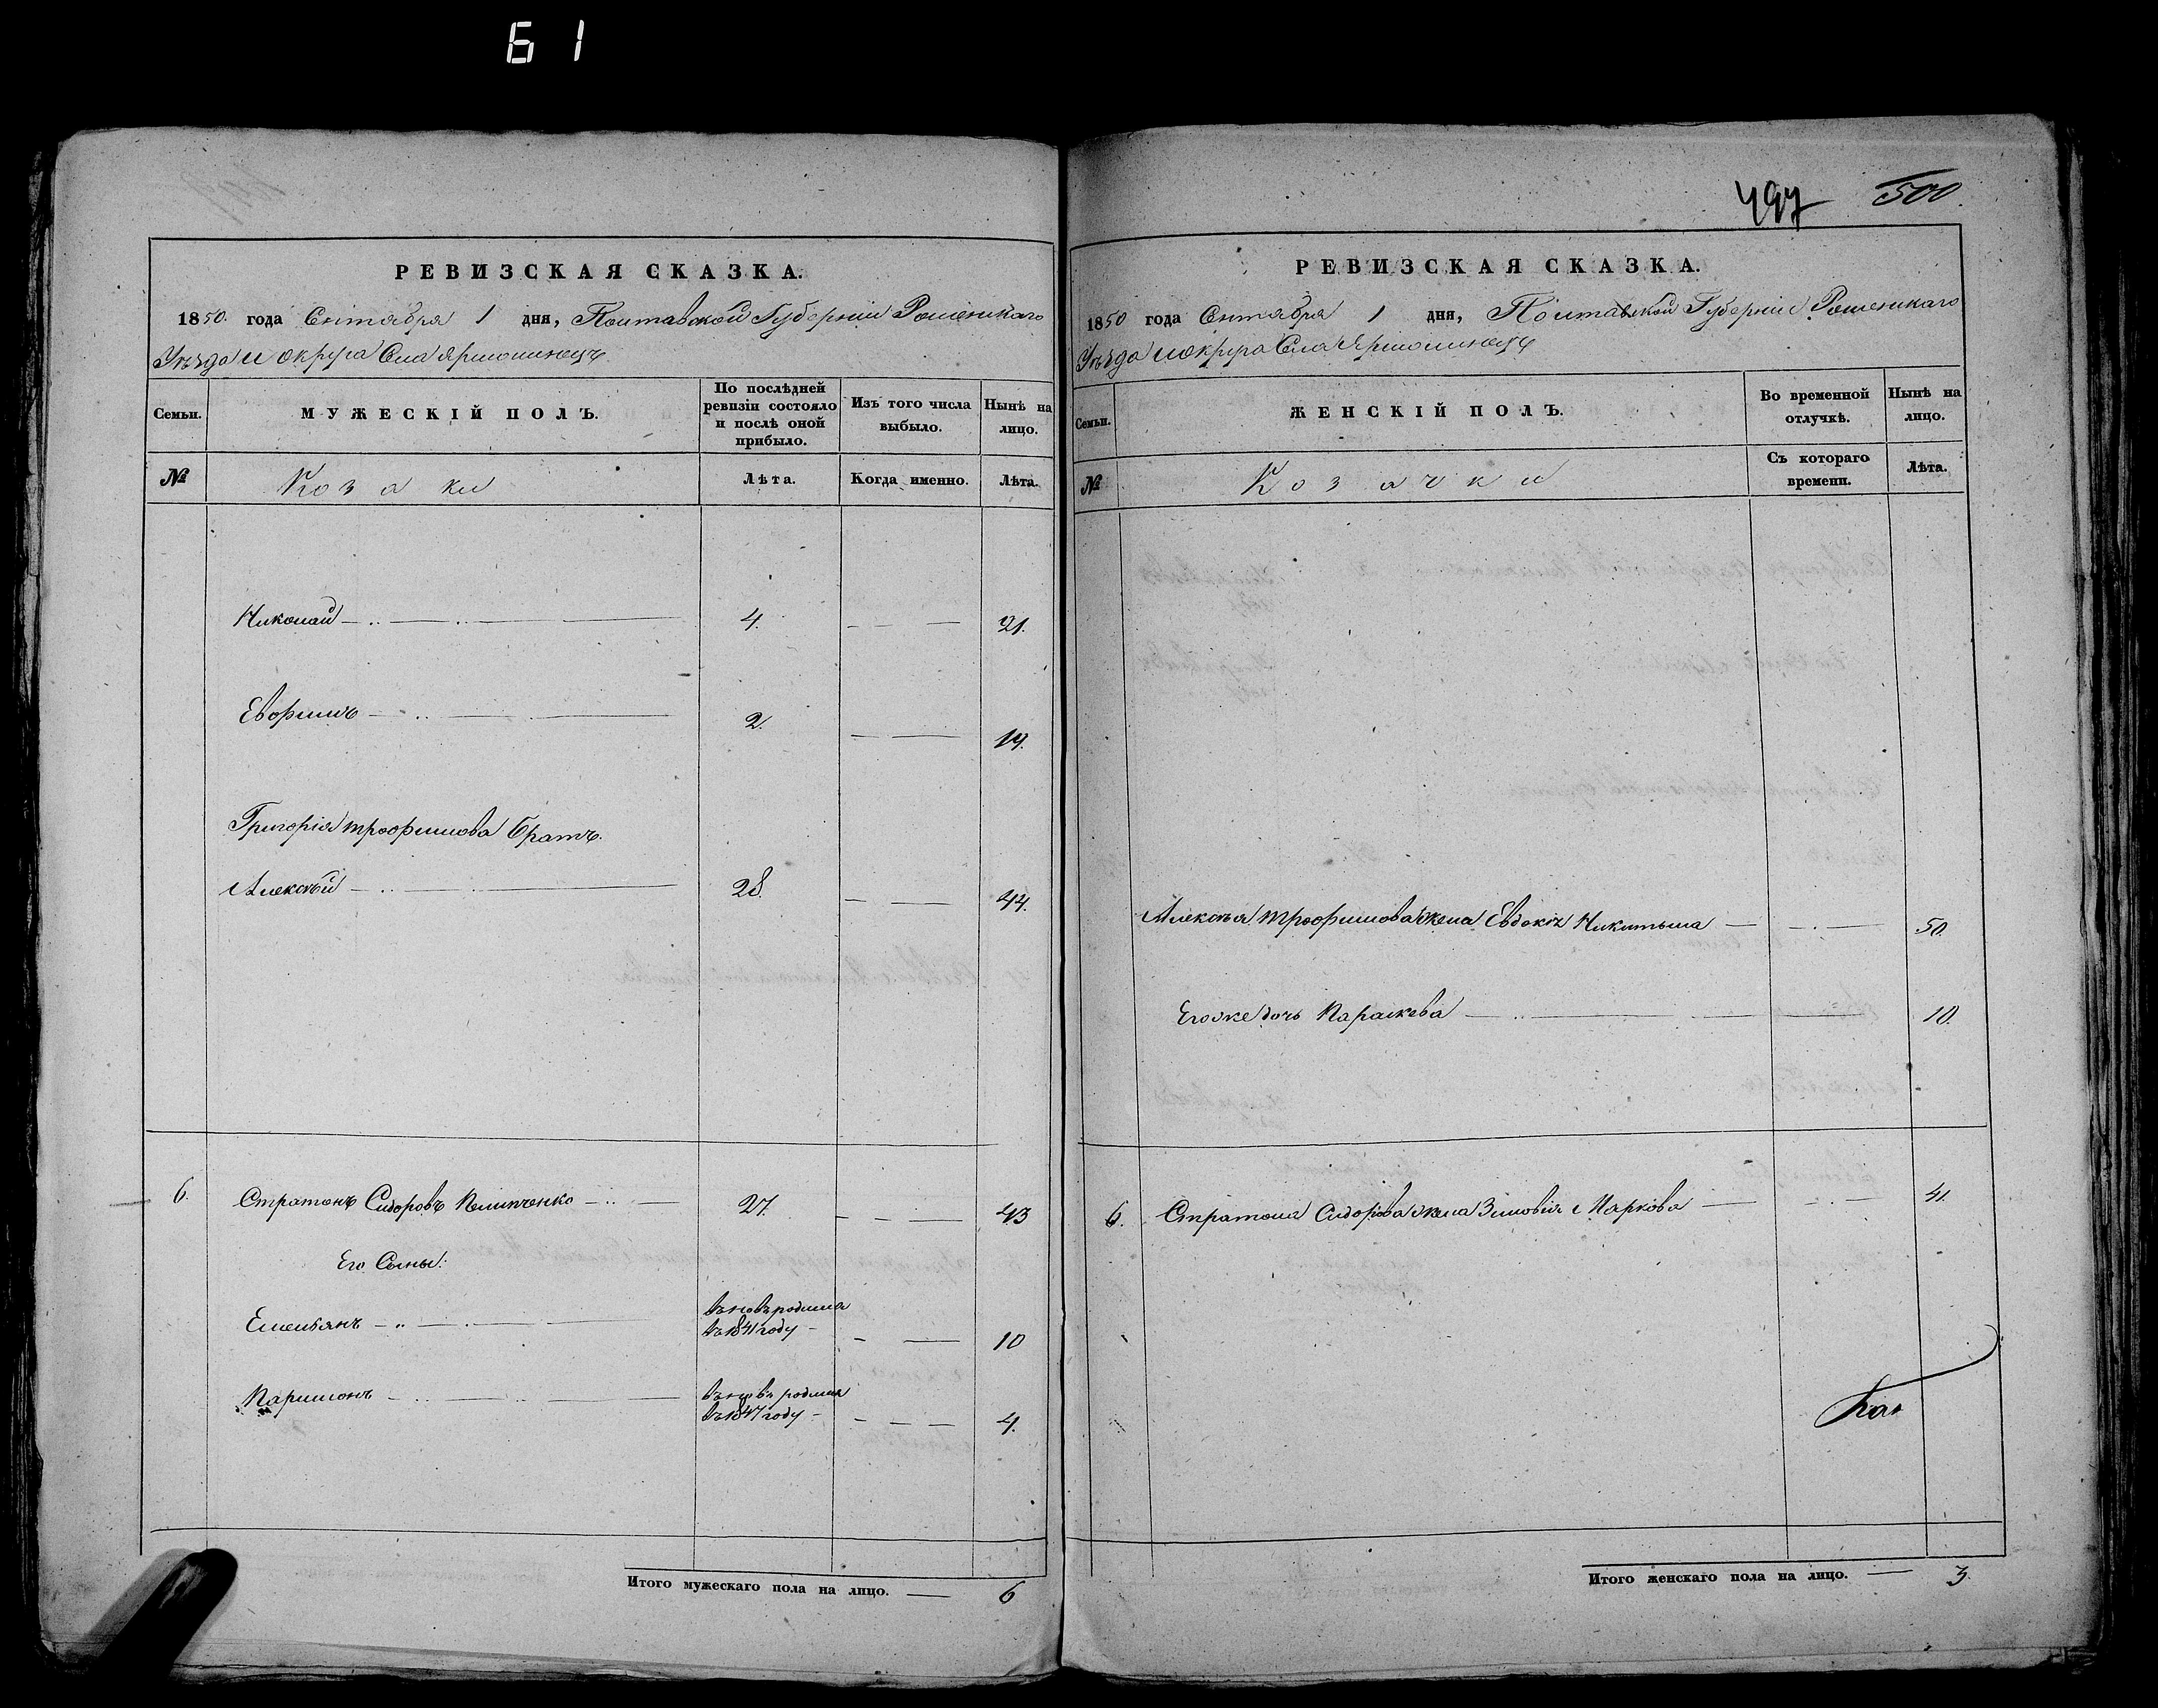 61
497 500.
РЕВИЗСКАЯ СКАЗКА.
1850. года Сентября 1 дня, Полтавской Губерніи Роменскаго
Уѣзда и округа Села Ярмолинецъ.
Семьи.
МУЖЕСКІЙ ПОЛЪ.
По послѣдней ревизіи состояло и послѣ оной прибыло.
Изъ того числа выбыло.
Нынѣ на лицо.
№
Козаки
Лѣта.
Когда именно.
Лѣта.
Николай — 4. — 21.
Евфимъ — 2. — 19.
Григорія трофимова Братъ.
Алексѣй — 28. — 44.
6. Стратонъ Сидоровъ Пилипченко — 27. — 43
Его Сыны:
Емельянъ — вновь родился въ 1841 году — 10
Паримонъ — вновь родился въ 1847 году — 4.
Итого мужескаго пола на лицо. — 6
РЕВИЗСКАЯ СКАЗКА.
1850 года Сентября 1 дня, Полтавской Губерніи Роменскаго
Уѣзда и округа Села Ярмолинецъ
Семьи.
ЖЕНСКІЙ ПОЛЪ.
Во временной отлучкѣ.
Нынѣ на лицо.
№
Козачки
Съ котораго времени.
Лѣта.
Алексѣя трофимова жена Евдокія Никитына — 50.
Его же дочь Параскева — 10.
6. Стратона Сидорова жена Зиновія Маркова — 41.
Итого женскаго пола на лицо. — 3.